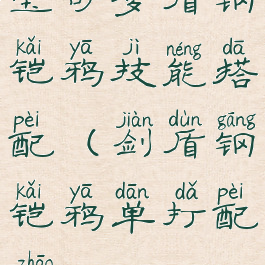 kǎi yā jì néng dā
铠 鸦 技 能 搭
pèi jiàn dùn gāng
配 ( 剑 盾 钢
kǎi yā dān dǎ pèi
铠 鸦 单 打 配